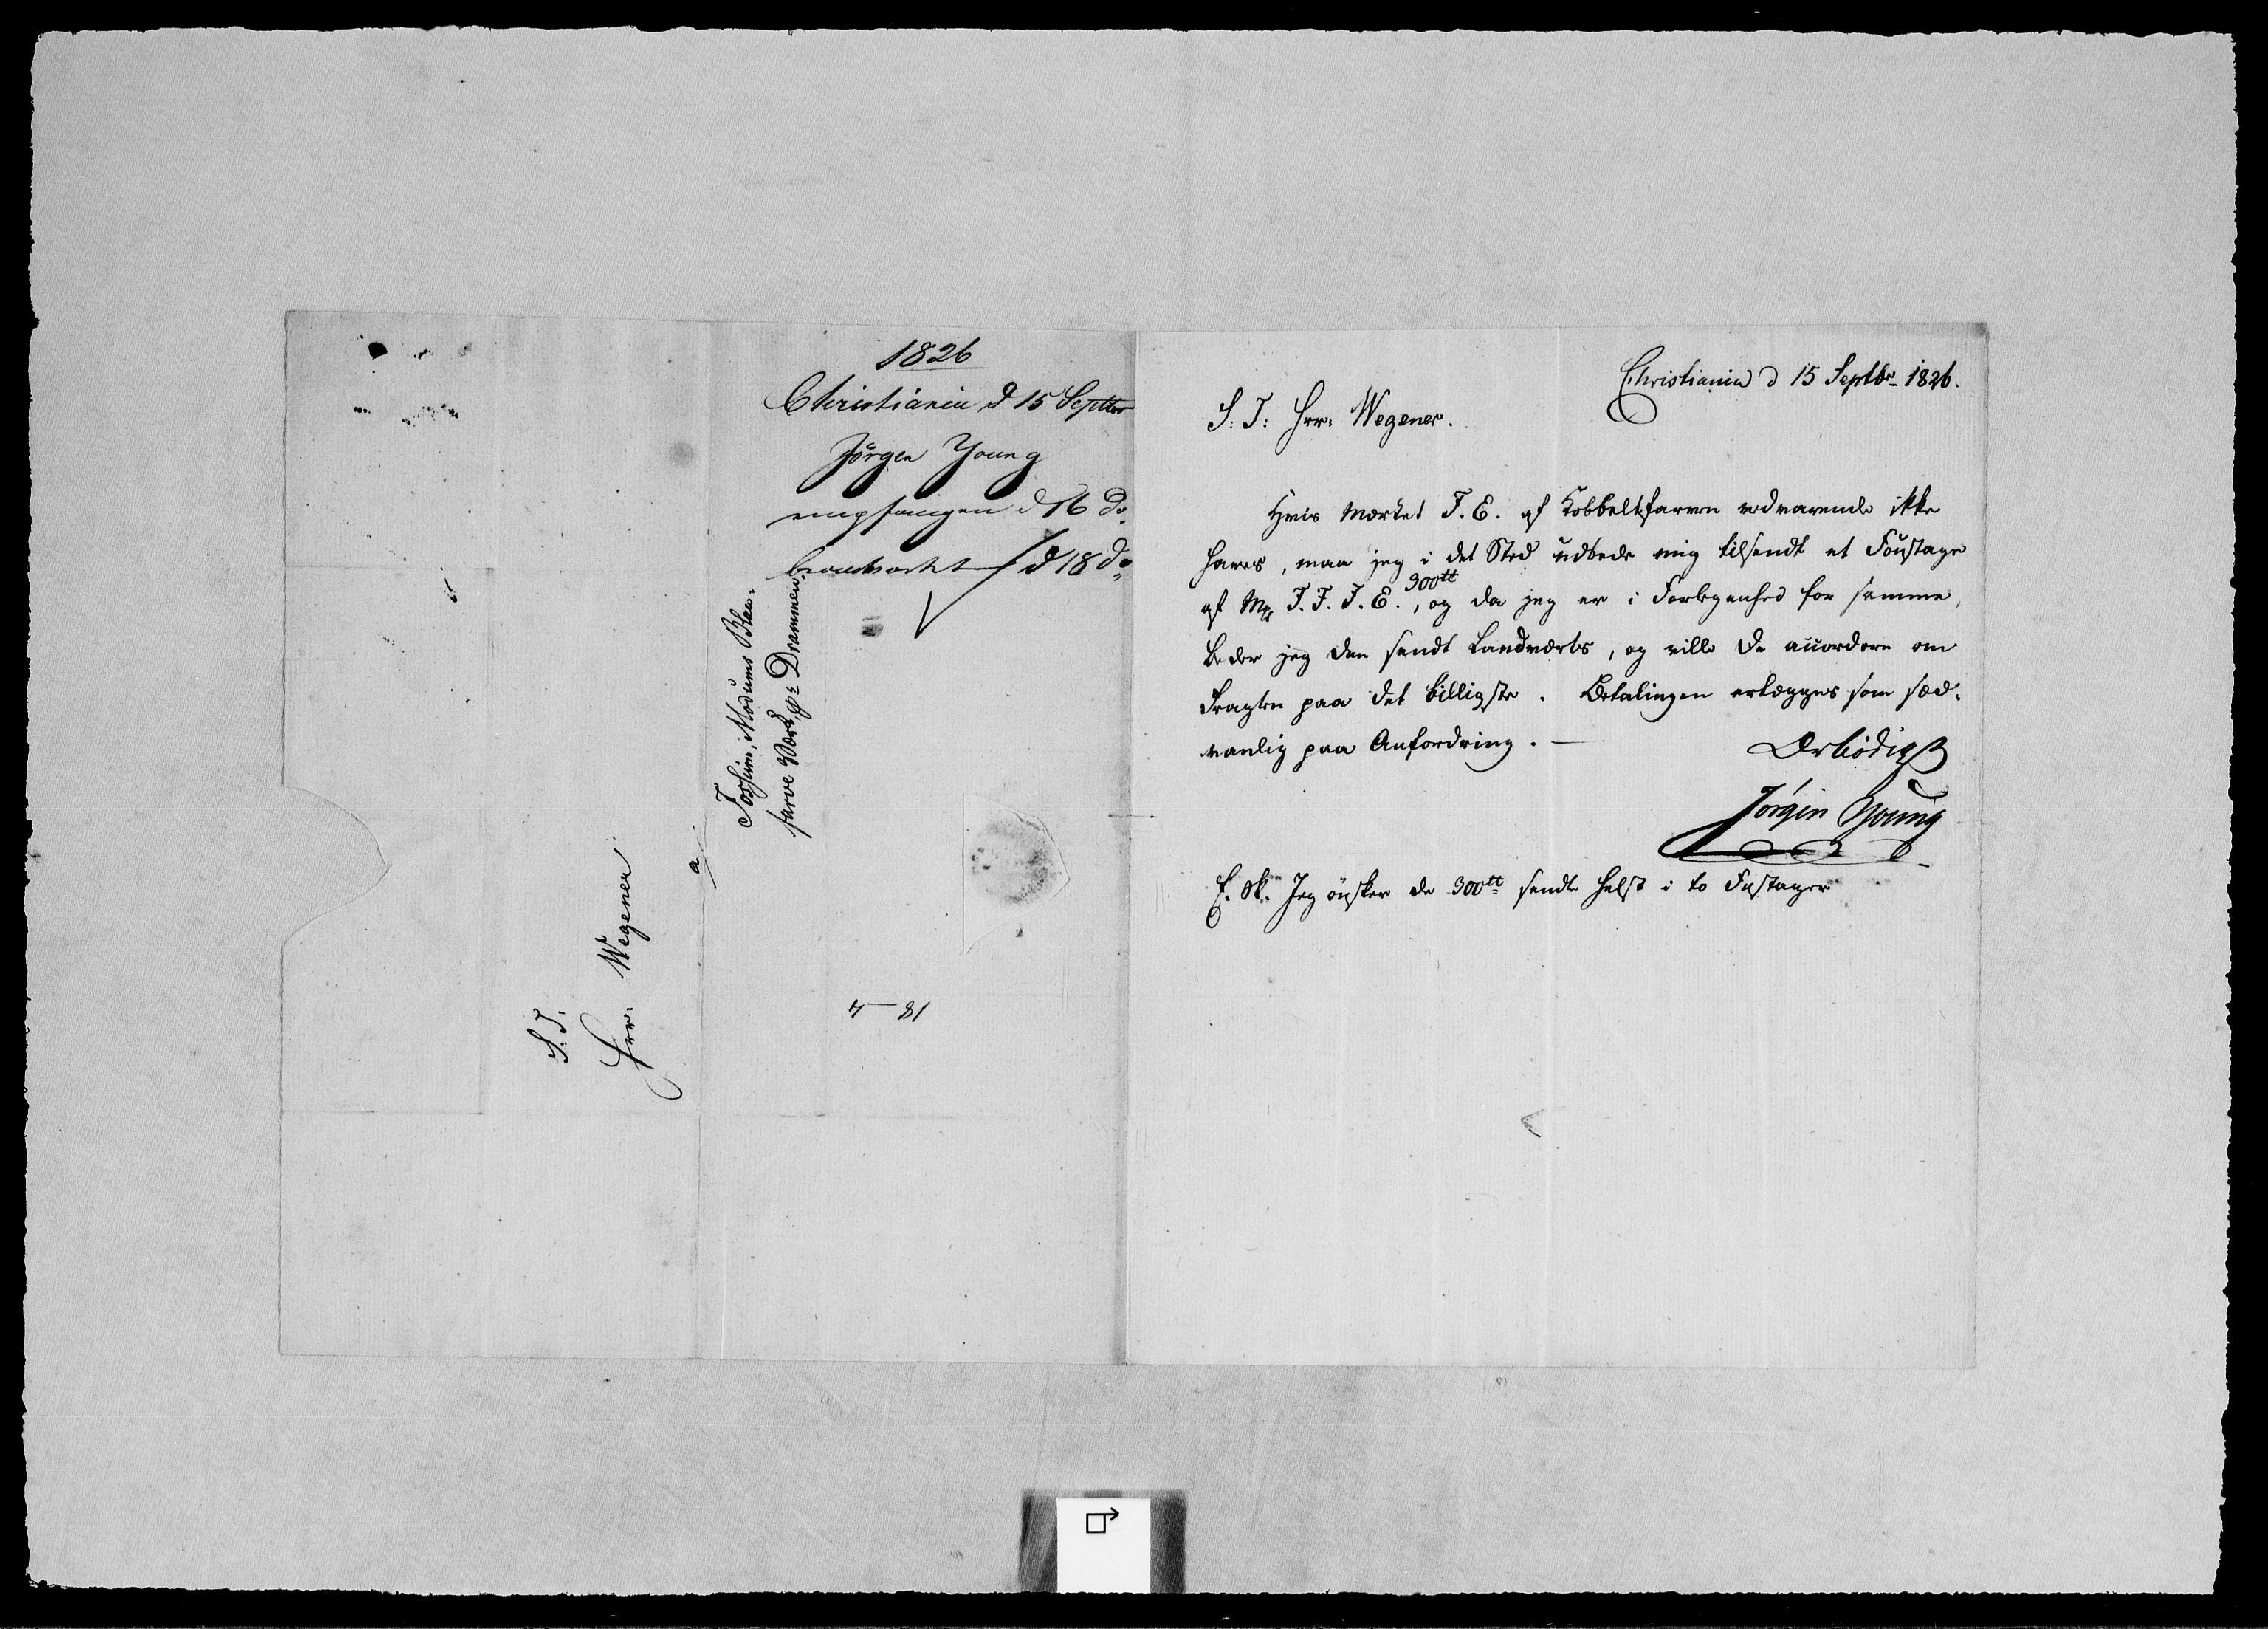 1826
Christiania d 15 Septbr
Jörgen Young
empfangen d 16 do.
beantwortet d 18 do.
S. T.
Hrr. Wegener
a
Fossum, Modums Blau-
farve Værk, pr. Drammen.
4-81
Christiania d 15 Septbr. 1826.
S: T: Hrr. Wegener.
Hvis Mærket F. E. af Kobbeltfarven vedvarende ikke
haves, maa jeg i det Sted udbede mig tilsendt et Foustage
af Mk F. F. F. E. 300tt, og da jeg er i Forlegenhed for samme,
beder jeg den sendt Landværts, og ville De accordere om
Fragten paa det billigste. Betalingen erlægges som sæd-
vanlig paa Anfordring. —
Ærbödigst
Jörgen Young
E. Sk. Jeg önsker de 300tt sendte helst i to Fustager